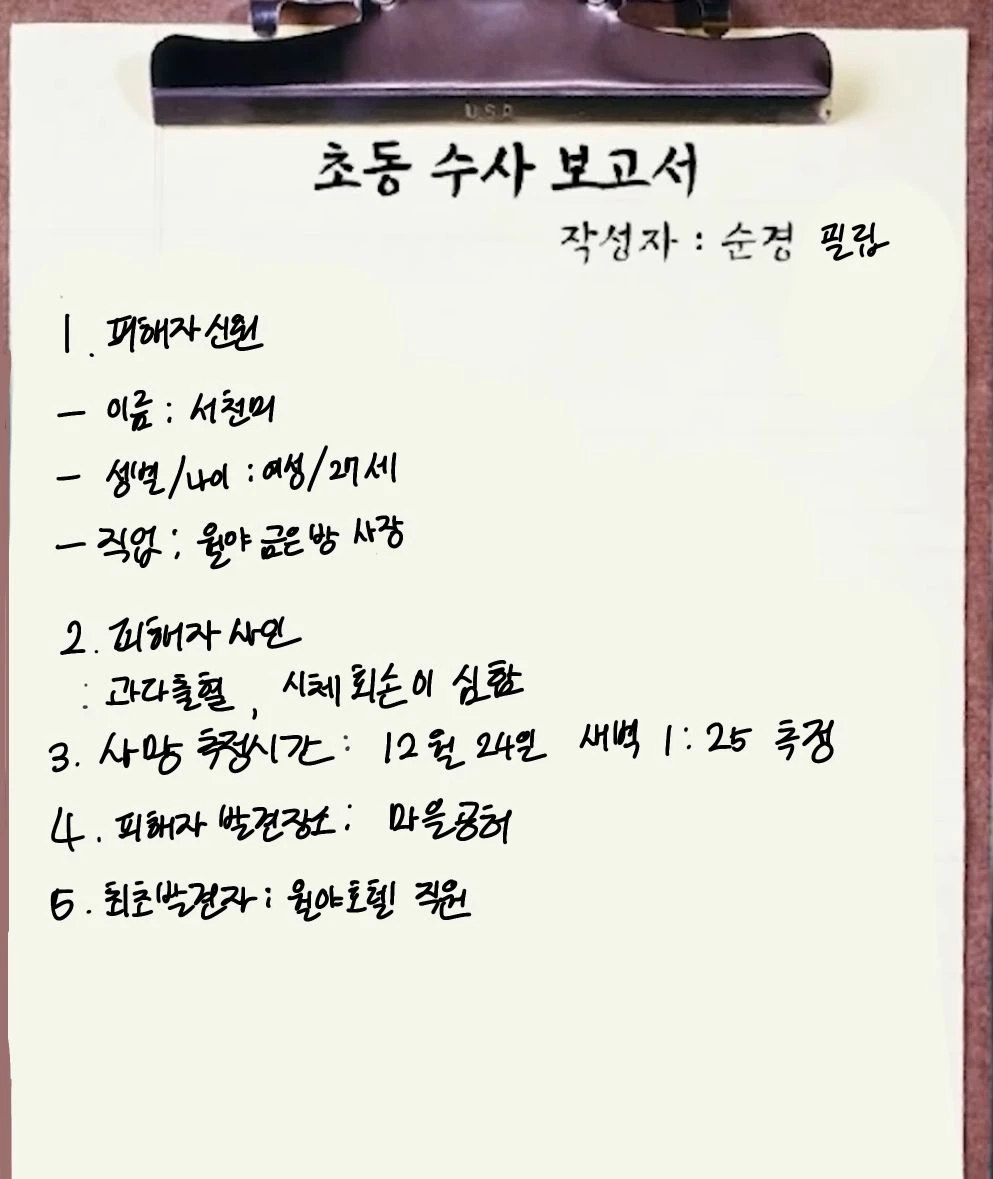 U.S.A.
초동 수사 보고서
작성자 : 순경 필립
1. 피해자신원
- 이름 : 서천미
- 성별/나이 : 여성/27세
- 직업 : 월야 금은방 사장
2. 피해자 사인
: 과다출혈, 시체 회손이 심함
3. 사망 추정시간 : 12월 24일 새벽 1:25 추정
4. 피해자 발견장소 : 마을공허
5. 최초발견자 : 월야호텔 직원